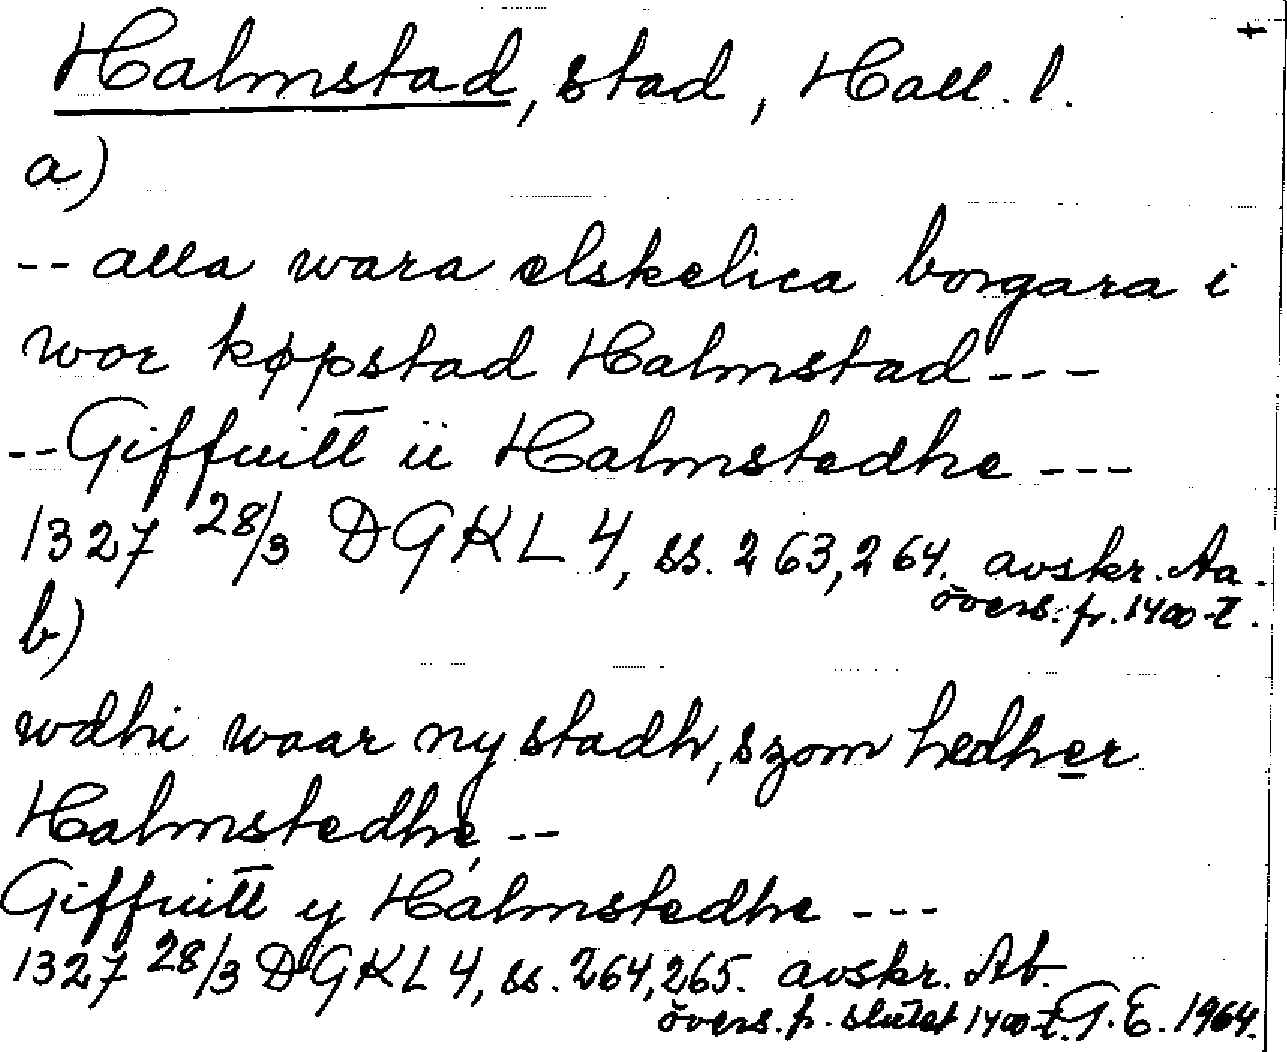 Halmstad, stad, Hall. l.
a)
-- alla wara elskelica borgara i
wor køpstad Halmstad ---
-- Giffuitt ii Halmstedhe ---
1327 28/3 DGKL 4, ss. 263, 264. avskr. Aa.
övers. fr. 1400-t.
b)
wdhi waar ny stadh, szom hedher
Halmstedhe, --
Giffuitt y Halmstedhe ---
1327 28/3 DGKL 4, ss. 264, 265. avskr. Ab.
övers. fr. slutet 1400-t. G. E. 1964.